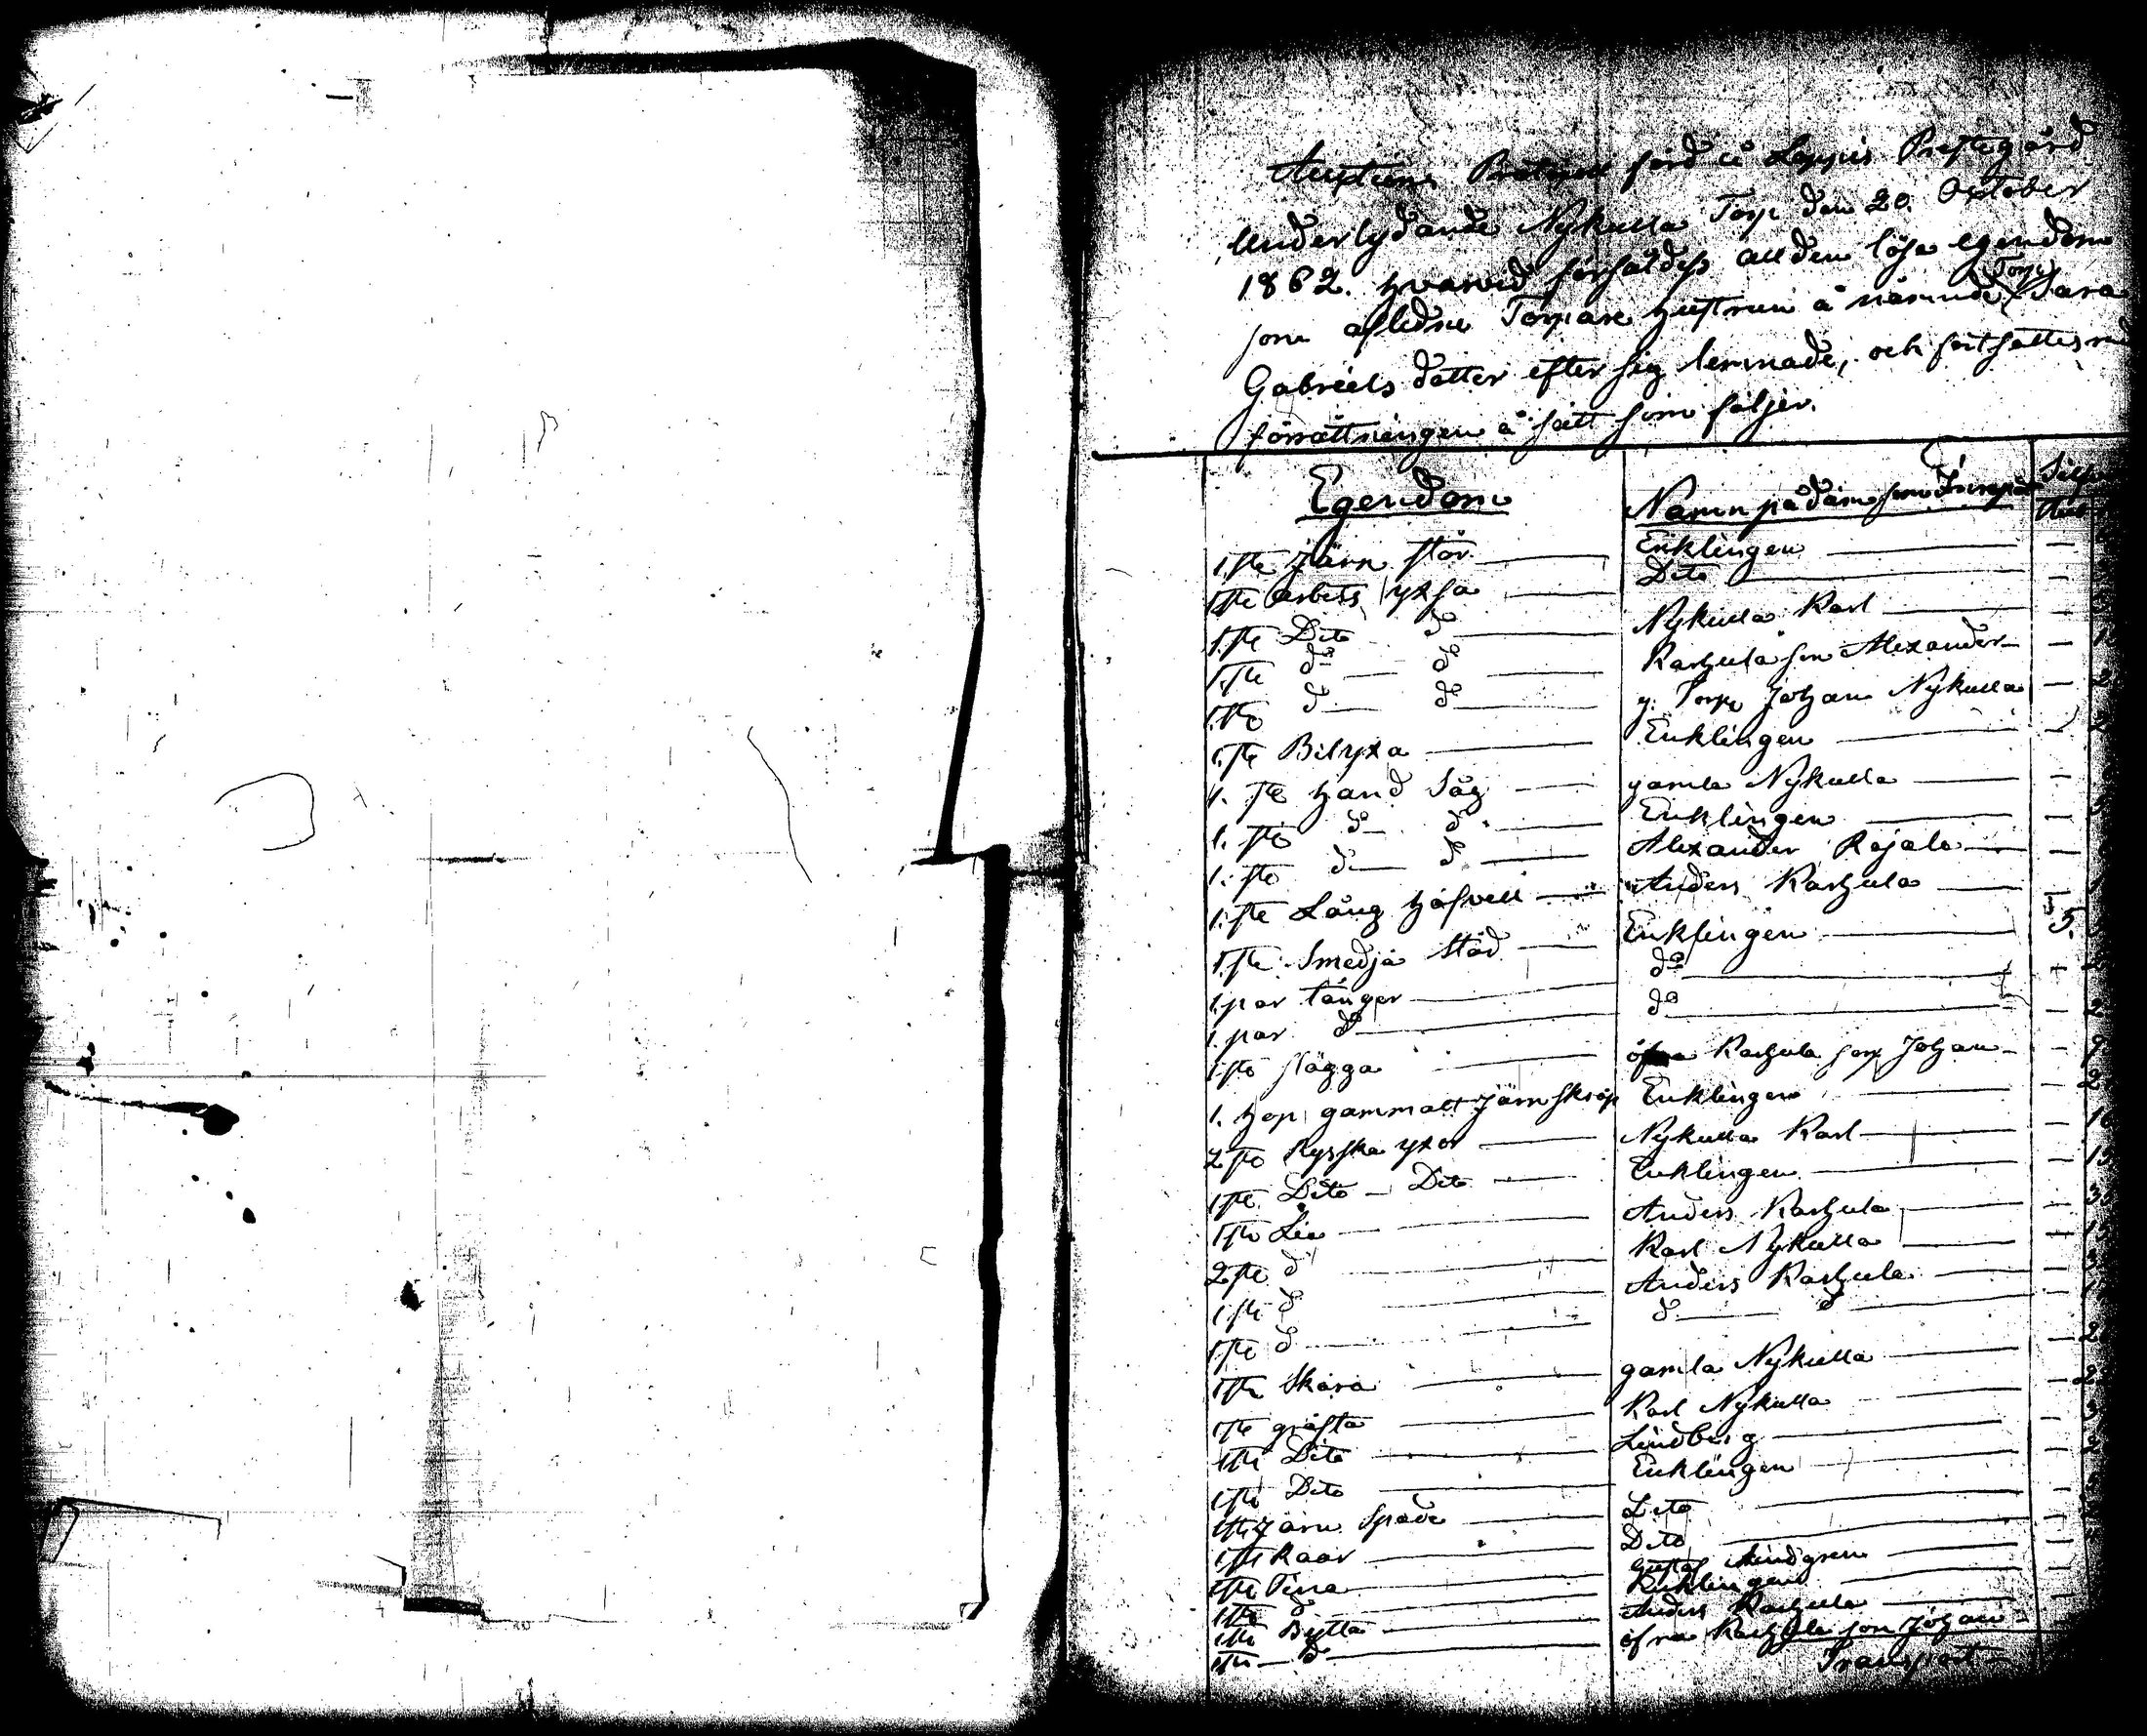 Auktions Protocoll förd å Loppis Prestegård
Underlydande Nykulla Torp den 20. October
1862. hvarvid försåldes all den lösa egendom
som aflidne Torpare hustrun å nämnde Torp Sara
Gabriels dotter efter sig lemnade, och fortsattes
förrättningen å sätt som följer.
Egendom Namn på dem som Inropat Silf
1 st Järn stör Enklingen —
1 st arbets yxsa Dito —
1 st Dito do Nykulla Karl —
1 st do do Karhula son Alexander —
1 st do do g. Torp Johan Nykulla —
1 st Bilyxa Enklingen —
1. st hand Såg gamla Nykulla —
1. st do do Enklingen —
1. st do do Alexander Rajala —
1. st Lång Anders Karhula —
1 st Smedja städ Enklingen 5.
1 par tänger do
1 par do do
1 st slägga öfra Karhula son Johan —
1. hop gammalt Järnskrap Enklingen —
2 st Rysska yxor Nykulla Karl —
1 st Dito Dito Enklingen —
1 st Lia Anders Karhula —
2 st do Karl Nykulla —
1 st do Anders Karhula —
1 st do do do
1 st Skära gamla Nykulla —
1 st gräfta Karl Nykulla
1 st Dito Lindberg
1 st Dito Enklingen
1 st Järn Spade Dito
1 st Dito
1 st Tina Gustaf Lindgren
1 st do Enklingen
1 st Bytta Anders Karhula
1 st do öfra Karhula son Johan
Transport